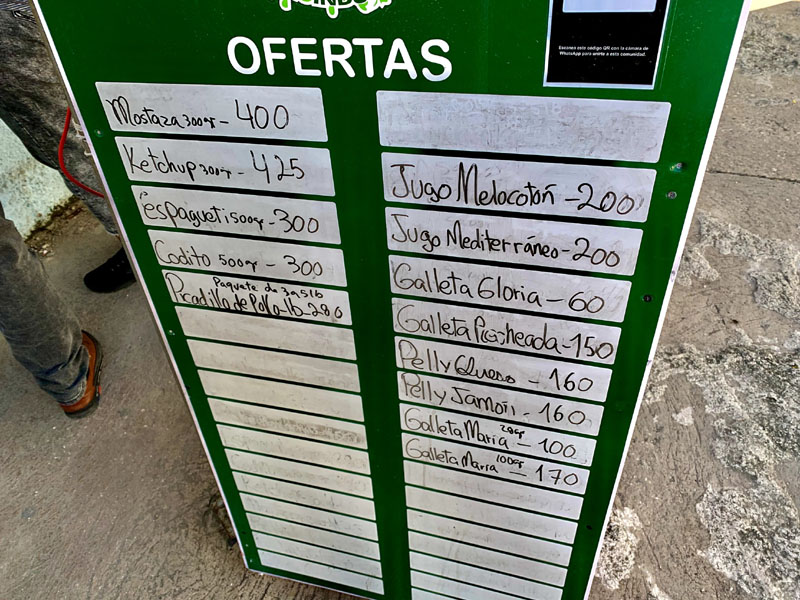 OFERTAS
Escanea este código QR con la cámara de
WhatsApp para unirte a esta comunidad.
Mostaza 300gr - 400
Ketchup 300gr - 425
espagueti 500gr - 300
Codito 500gr - 300
Paquete de 3a5lb
Picadillo de Pollo - lb - 280
Jugo Melocotón - 200
Jugo Mediterráneo - 200
Galleta Gloria - 60
Galleta - 150
Pelly Queso - 160
Pelly Jamón - 160
Galleta María - 100
Galleta María 100gr - 170